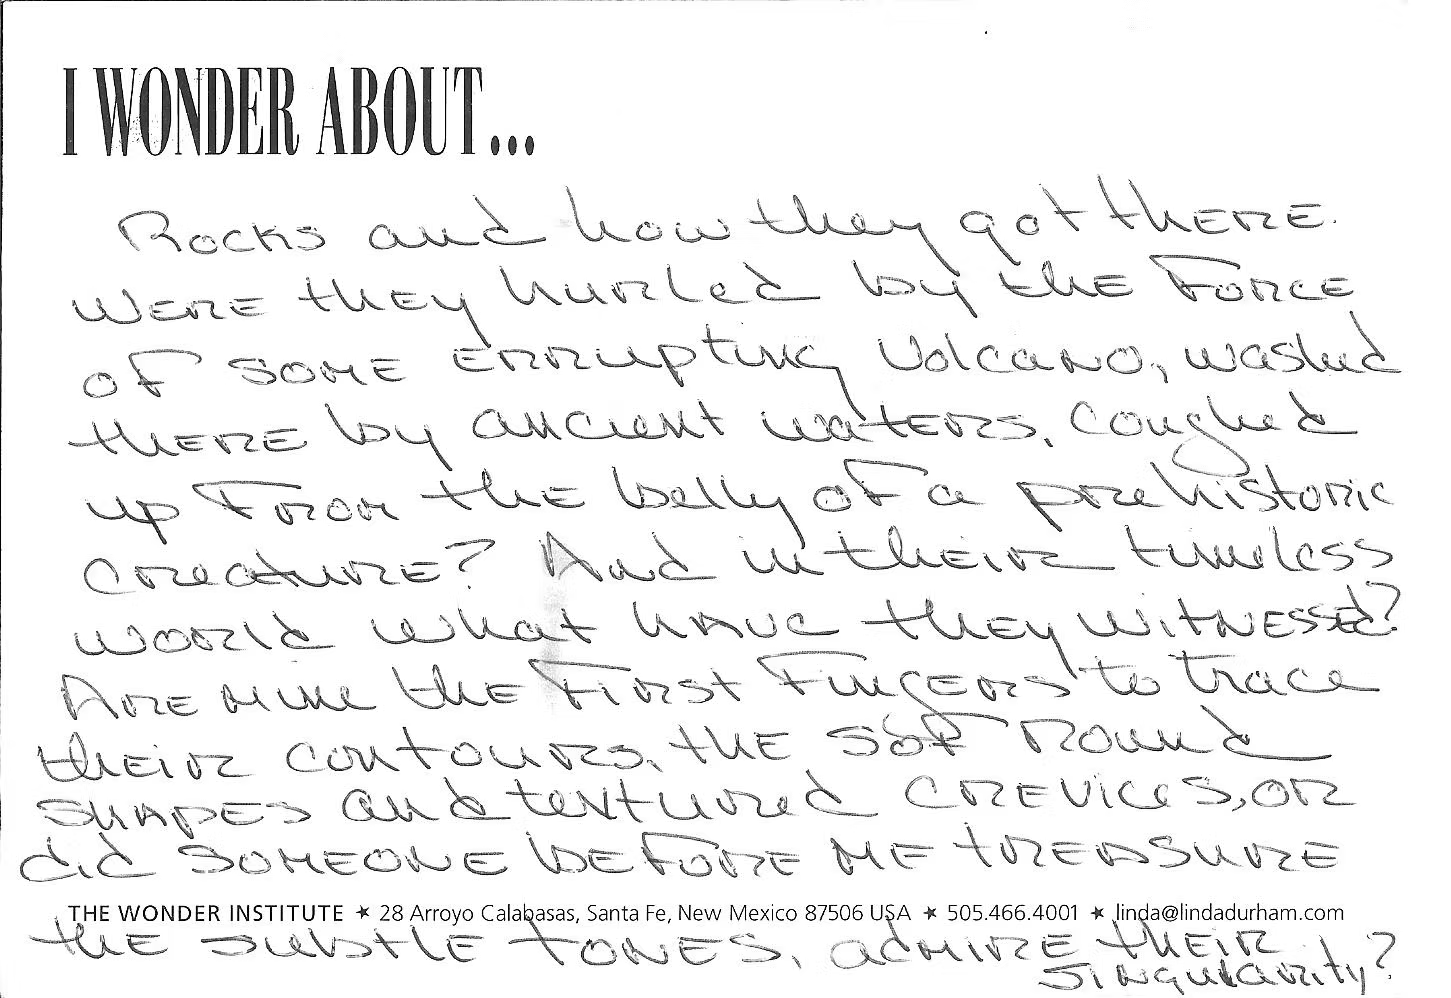 I WONDER ABOUT...
Rocks and how they got there.
Were they hurled by the force
of some errupting volcano, washed
there by ancient waters, coughed
up from the belly of a prehistoric
creature? And in their timeless
world what have they witnessed?
Are mine the first fingers to trace
their contours, the soft round
shapes and textured crevices, or
did someone before me treasure
THE WONDER INSTITUTE ★ 28 Arroyo Calabasas, Santa Fe, New Mexico 87506 USA ★ 505.466.4001 ★ linda@lindadurham.com
the subtle tones, admire their
singularity?